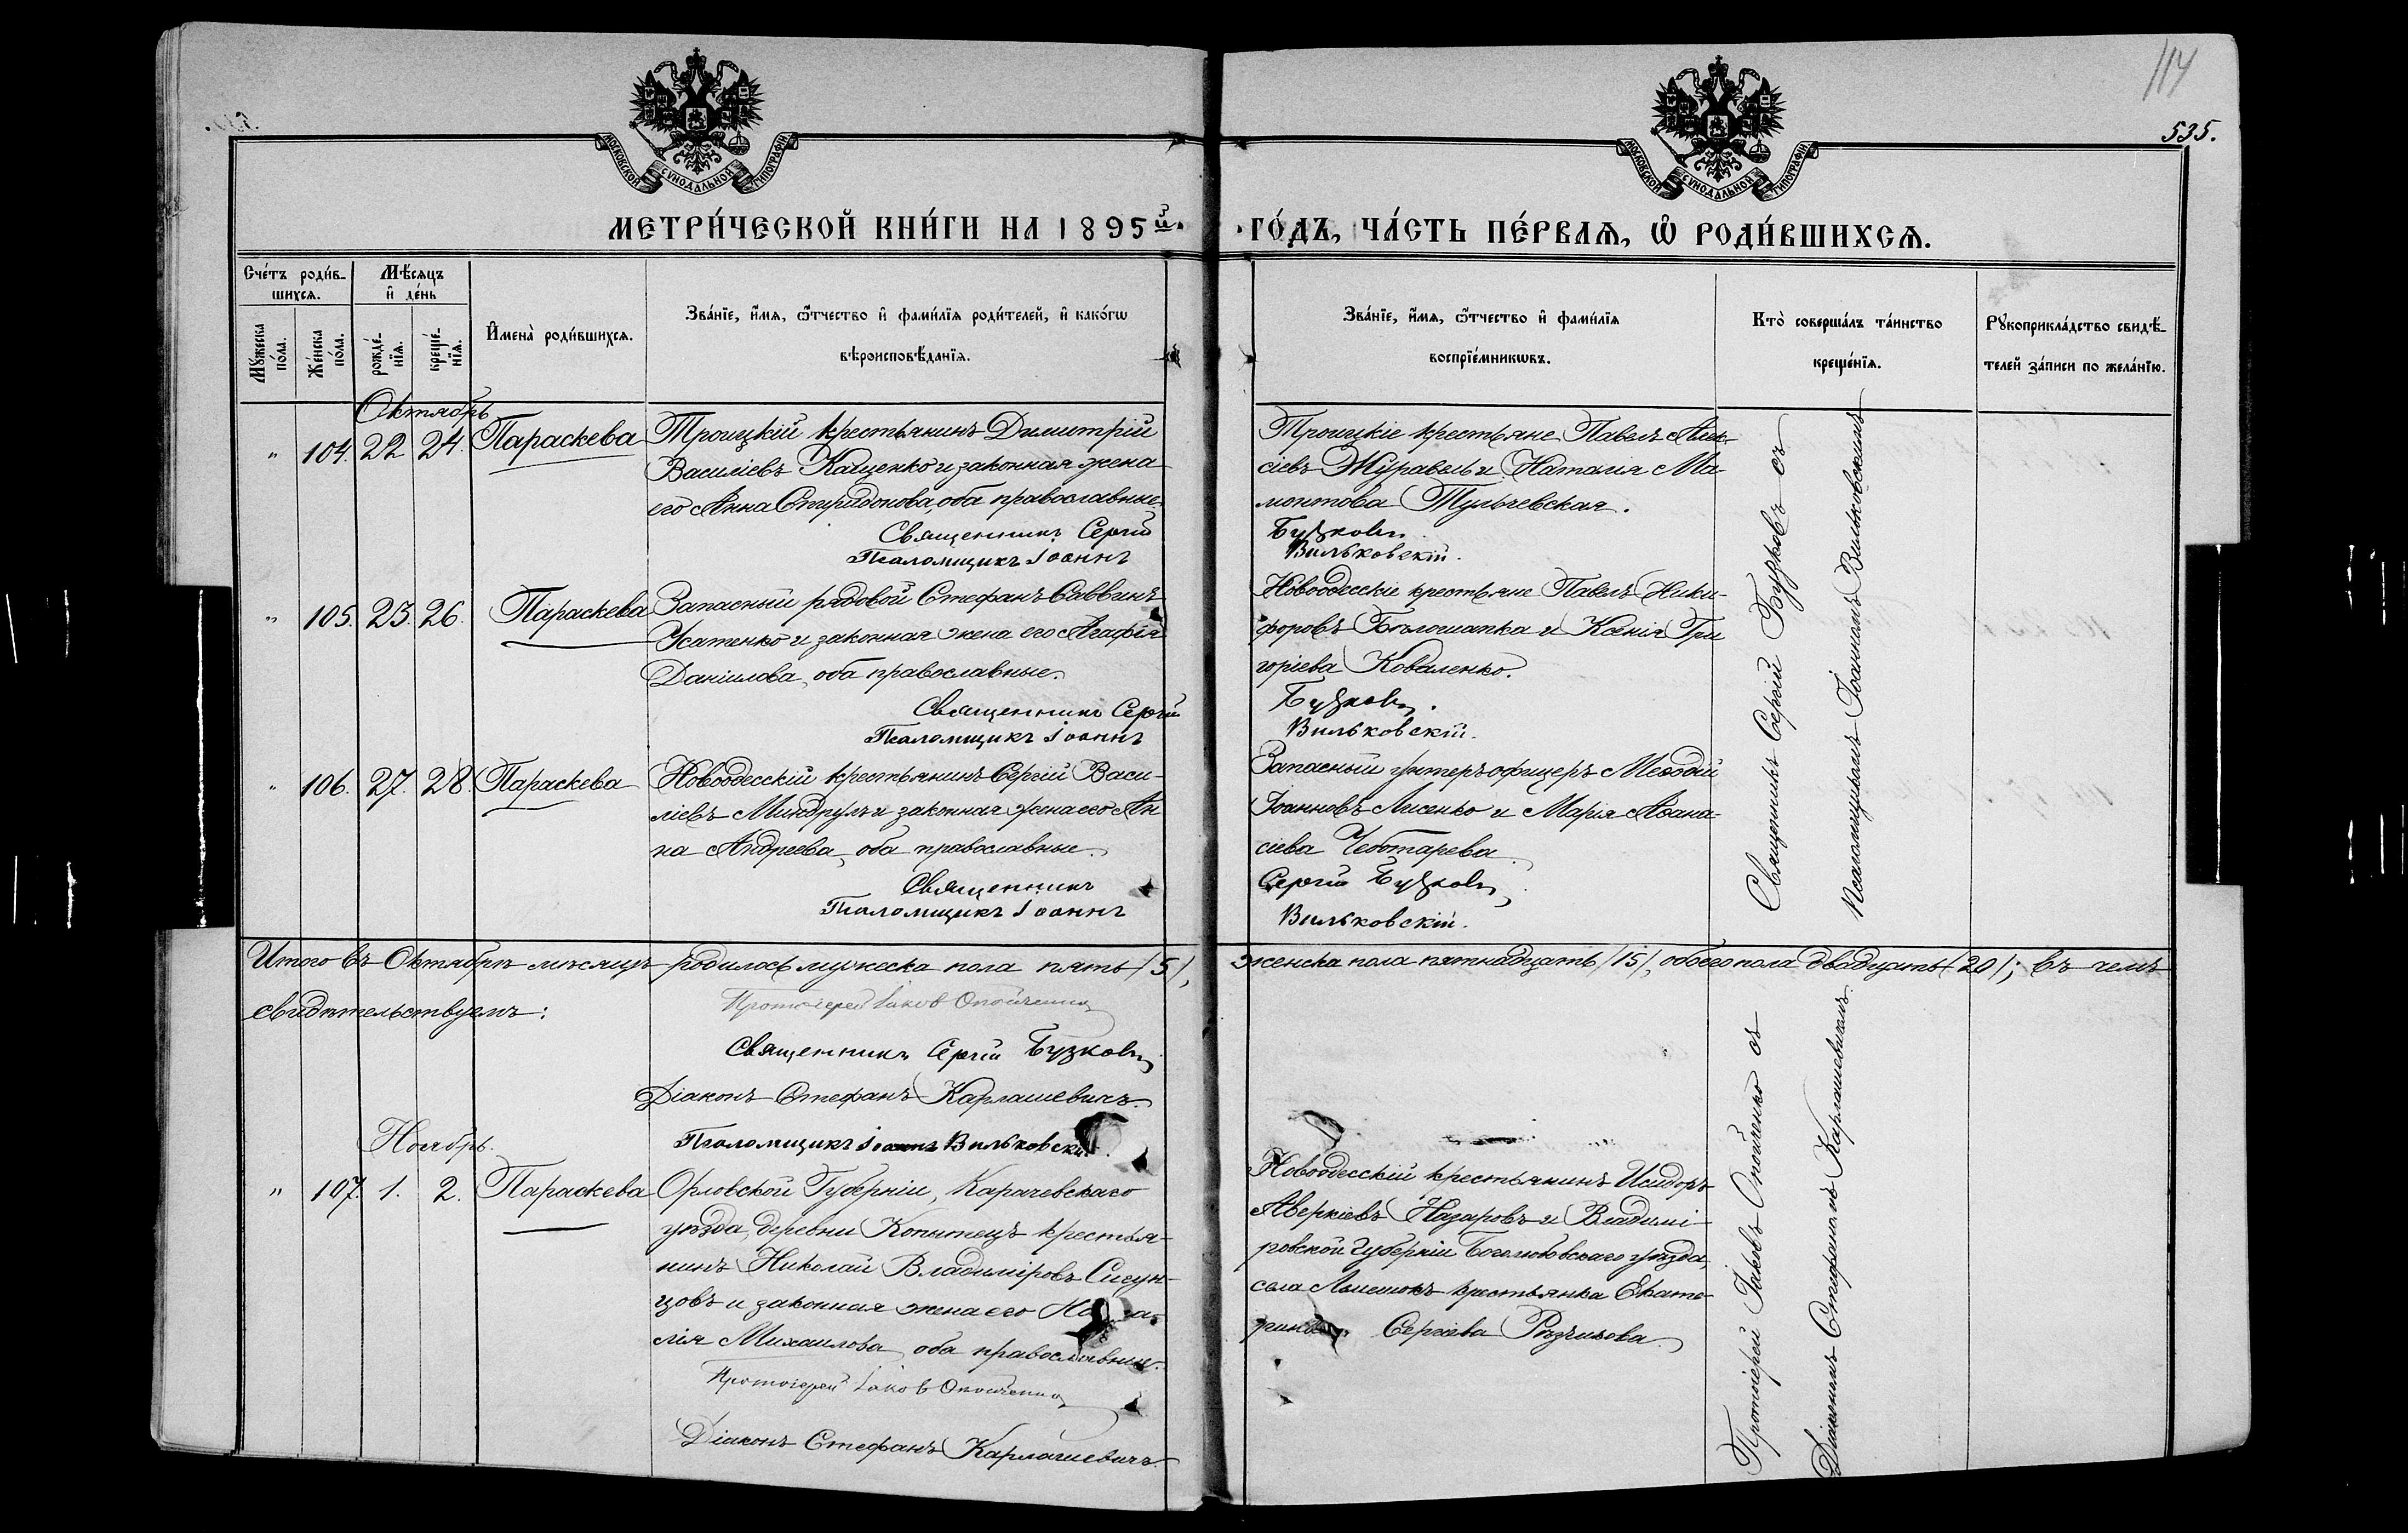 114
535.
МОСКОВСКОЙ СѴНОДАЛЬНОЙ ТИПОГРАФІИ
МОСКОВСКОЙ СѴНОДАЛЬНОЙ ТИПОГРАФІИ
МЕТРИ́ЧЕСКОЙ КНИ́ГИ НА 1895й.
ГО́ДЪ, ЧА́СТЬ ПЕ́РВАѦ, Ѡ РОДИ́ВШИХСѦ.
Сче́тъ роди́в-
шихсѧ.
Мꙋ́жеска по́ла.
Же́нска по́ла.
Мѣ́сѧцъ
и҆ де́нь
рожде́-нїѧ.
креще́-нїѧ.
И҆мена̀ роди́вшихсѧ.
Зва́нїе, и҆́мѧ, ѻ҆́тчество и҆ фами́лїѧ роди́телей, и҆ како́гѡ
вѣроисповѣ́данїѧ.
Зва́нїе, и҆́мѧ, ѻ҆́тчество и҆ фами́лїѧ
воспрїе́мникѡвъ.
Кто̀ соверша́лъ та́инство
креще́нїѧ.
Рꙋкоприкла́дство свидѣ́-
телей за́писи по жела́нїю.
Октябрь
" 104. 22 24. Параскева
Троицкій крестьянинъ Димитрій
Василіевъ Кащенко и законная жена
его Анна Спиридонова, оба православные.
Священникъ Сергій
Псаломщикъ Іоаннъ
Троицкіе крестьяне Павелъ Алек-
сіевъ Журавель и Наталія Ма-
монтова Тульчевская.
Бузковъ.
Вильковскій.
" 105. 23. 26. Параскева
Запасный рядовой Стефанъ Саввинъ
Усатенко и законная жена его Агафія
Даніилова, оба православные.
Священникъ Сергій
Псаломщикъ Іоаннъ
Новоодесскіе крестьяне Павелъ Ники-
форовъ Бѣлошапка и Ксенія Гри
горіева Коваленко.
Бузковъ.
Вильковскій.
" 106. 27. 28. Параскева
Новоодесскій крестьянинъ Сергій Васи-
ліевъ Миндрулъ и законная жена его Ан
на Андреева, оба православные.
Священникъ
Псаломщикъ Іоаннъ
Запасный унтеръ офицеръ Меѳодій
Іоанновъ Лисенко и Марія Аѳана-
сіева Чеботарева.
Сергій Бузковъ
Вильковскій.
Священникъ Сергій Бузковъ съ
Псаломщикомъ Іоанномъ Вильковскимъ
Итого въ Октябрѣ мѣсяцѣ родилось мужеска пола пять /5/,
женска пола пятнадцать /15/, обоего пола двадцать /20/; въ чемъ
свидѣтельствуемъ:
Протоіерей Іаковъ Опойченко
Священникъ Сергій Бузковъ
Діаконъ Стефанъ Карлашевичъ.
Псаломщикъ Іоаннъ Вильковскій.
Ноябрь.
" 107. 1. 2. Параскева
Орловской Губерніи, Карачевскаго
уѣзда, деревни Копытецъ крестья-
нинъ Николай Владиміровъ Сисун-
цовъ и законная жена его
Михаилова, оба православные.
Протоіерей Іаковъ Опойченко
Діаконъ Стефанъ Карлашевичъ.
Новоодесскій крестьянинъ Исидоръ
Аверкіевъ Назаровъ и Владимі-
ровской Губерніи Боголюбовскаго уѣзда,
села крестьянка Екате-
рина Сергіева Рязчикова.
Протоіерей Іаковъ Опойченко съ
Діакономъ Стефаномъ Карлашевичемъ.